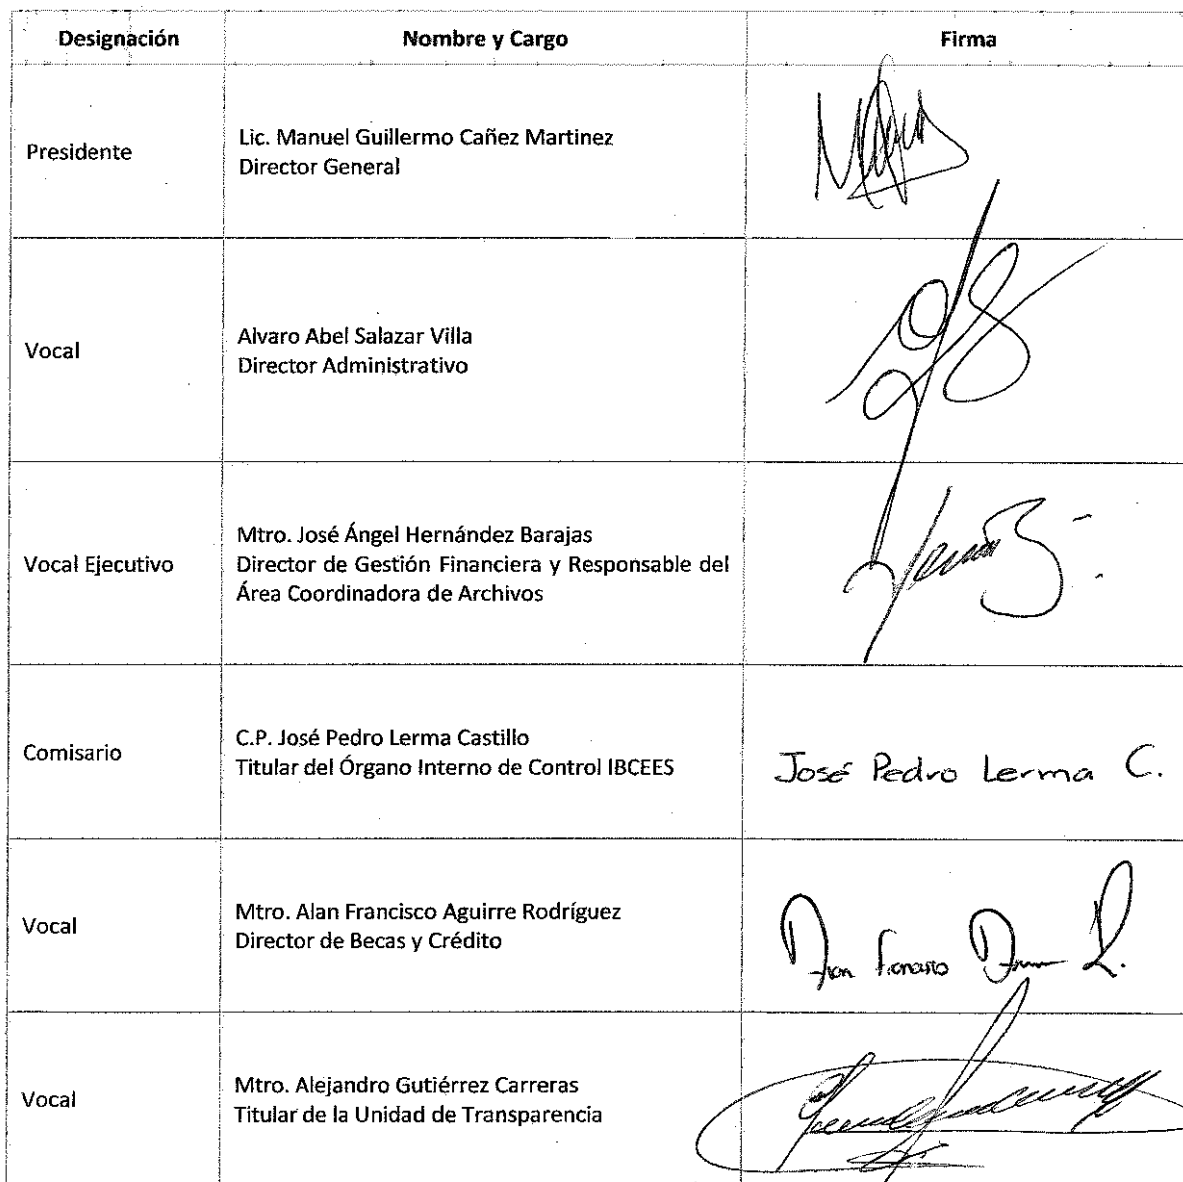 Designación Nombre y Cargo Firma
Presidente
Lic. Manuel Guillermo Cañez Martinez
Director General
Vocal
Alvaro Abel Salazar Villa
Director Administrativo
Vocal Ejecutivo
Mtro. José Ángel Hernández Barajas
Director de Gestión Financiera y Responsable del
Área Coordinadora de Archivos
Comisario
C.P. José Pedro Lerma Castillo
Titular del Órgano Interno de Control IBCEES
José Pedro Lerma C.
Vocal
Mtro. Alan Francisco Aguirre Rodríguez
Director de Becas y Crédito
Vocal
Mtro. Alejandro Gutiérrez Carreras
Titular de la Unidad de Transparencia